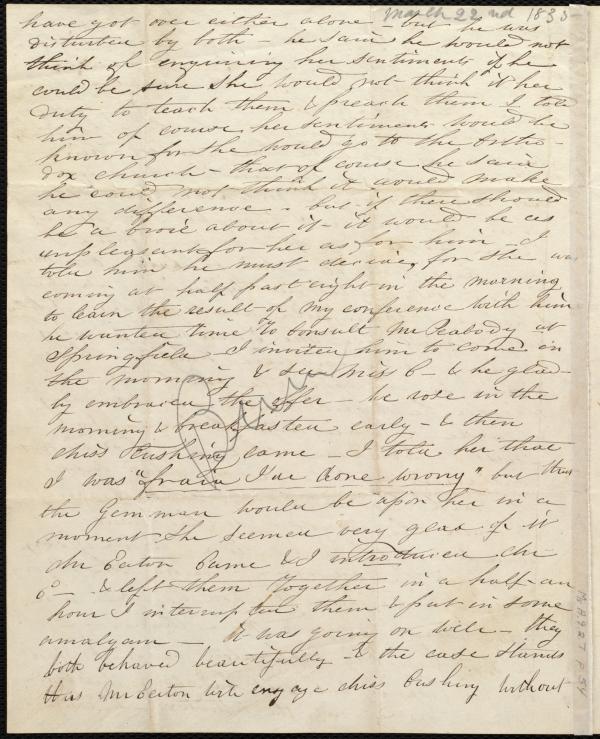 March 22nd 1835
have got over either alone - but he was
disturbed by both he said he would not
think of enquiring her sentiments if he
could be sure she would not think it her
duty to teach them & preach them I told
him of course her sentiments would be
known for she would go to the Ortho-
dox church - that of course he said
he could not think it would make
any difference - but if there should
be a broil about it - it would be as
unpleasant for her as for him - I
told him he must decide, for she was
coming at half past eight in the morning
to learn the result of my conference with him
he wanted time to consult Mr Peabody at
Springfield - I invited him to come in
the morning & see Miss C - & he glad-
ly embraced the offer - he rose in the
morning & breakfasted early - & then
Miss Cushing came - I told her that
I was "fraid I'd done wrong" but that
the Gemman would be upon her in a
moment She seemed very glad of it
Mr Eaton came & I introduced Mr
& left them together in a half an
hour I interrupted them & put in some
amalgam - it was going on well - they
both behaved beautifully - & the case stands
thus Mr Eaton will engage Miss Cushing without
Ms A 9.2.7 P 54